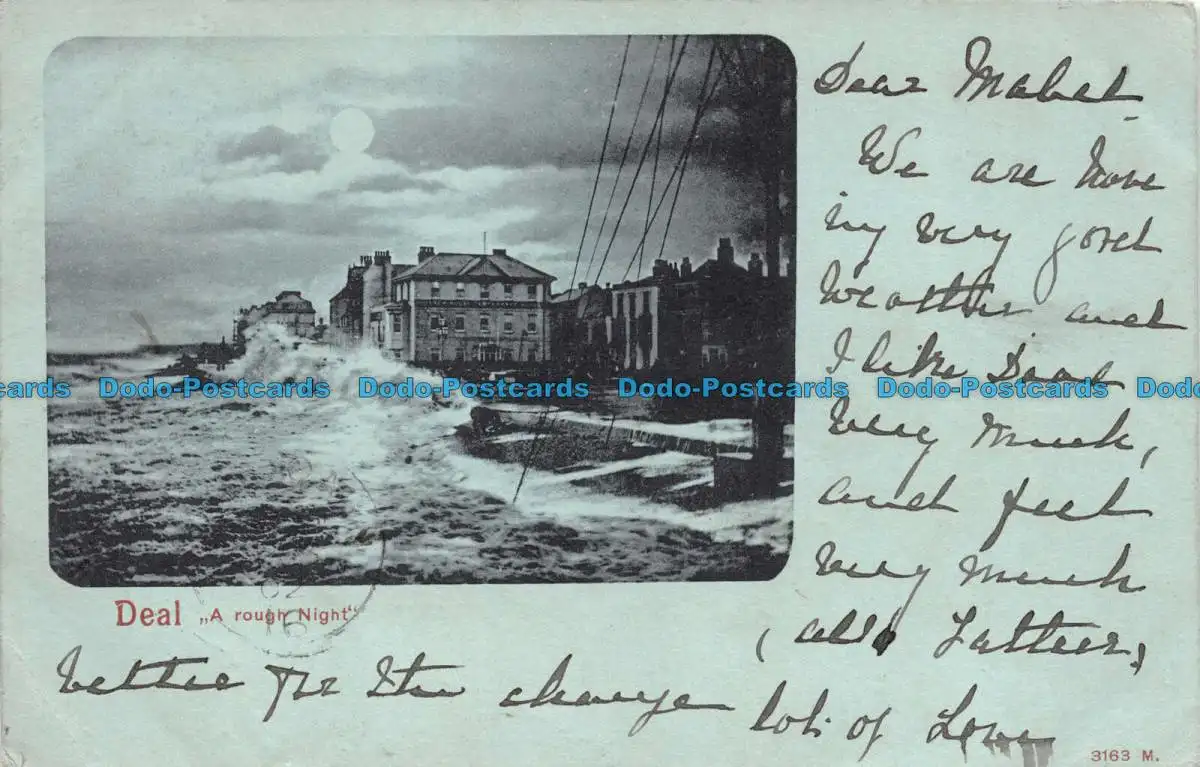 Dear Mabel
We are hav
ing very good
Weather and
I like Deal
very much,
and feel
very much
(also Father,)
better for the change lot of Love
Deal „A rough Night“
3163 M.
Dodo-Postcards Dodo-Postcards Dodo-Postcards Dodo-Postcards